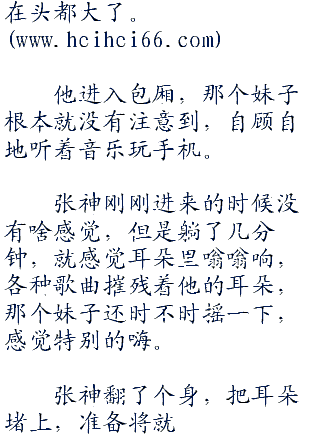 在头都大了。
(www.hcihci66.com)
他进入包厢，那个妹子
根本就没有注意到，自顾自
地听着音乐玩手机。
张神刚刚进来的时候没
有啥感觉，但是躺了几分
钟，就感觉耳朵里嗡嗡响，
各种歌曲摧残着他的耳朵，
那个妹子还时不时摇一下，
感觉特别的嗨。
张神翻了个身，把耳朵
堵上，准备将就